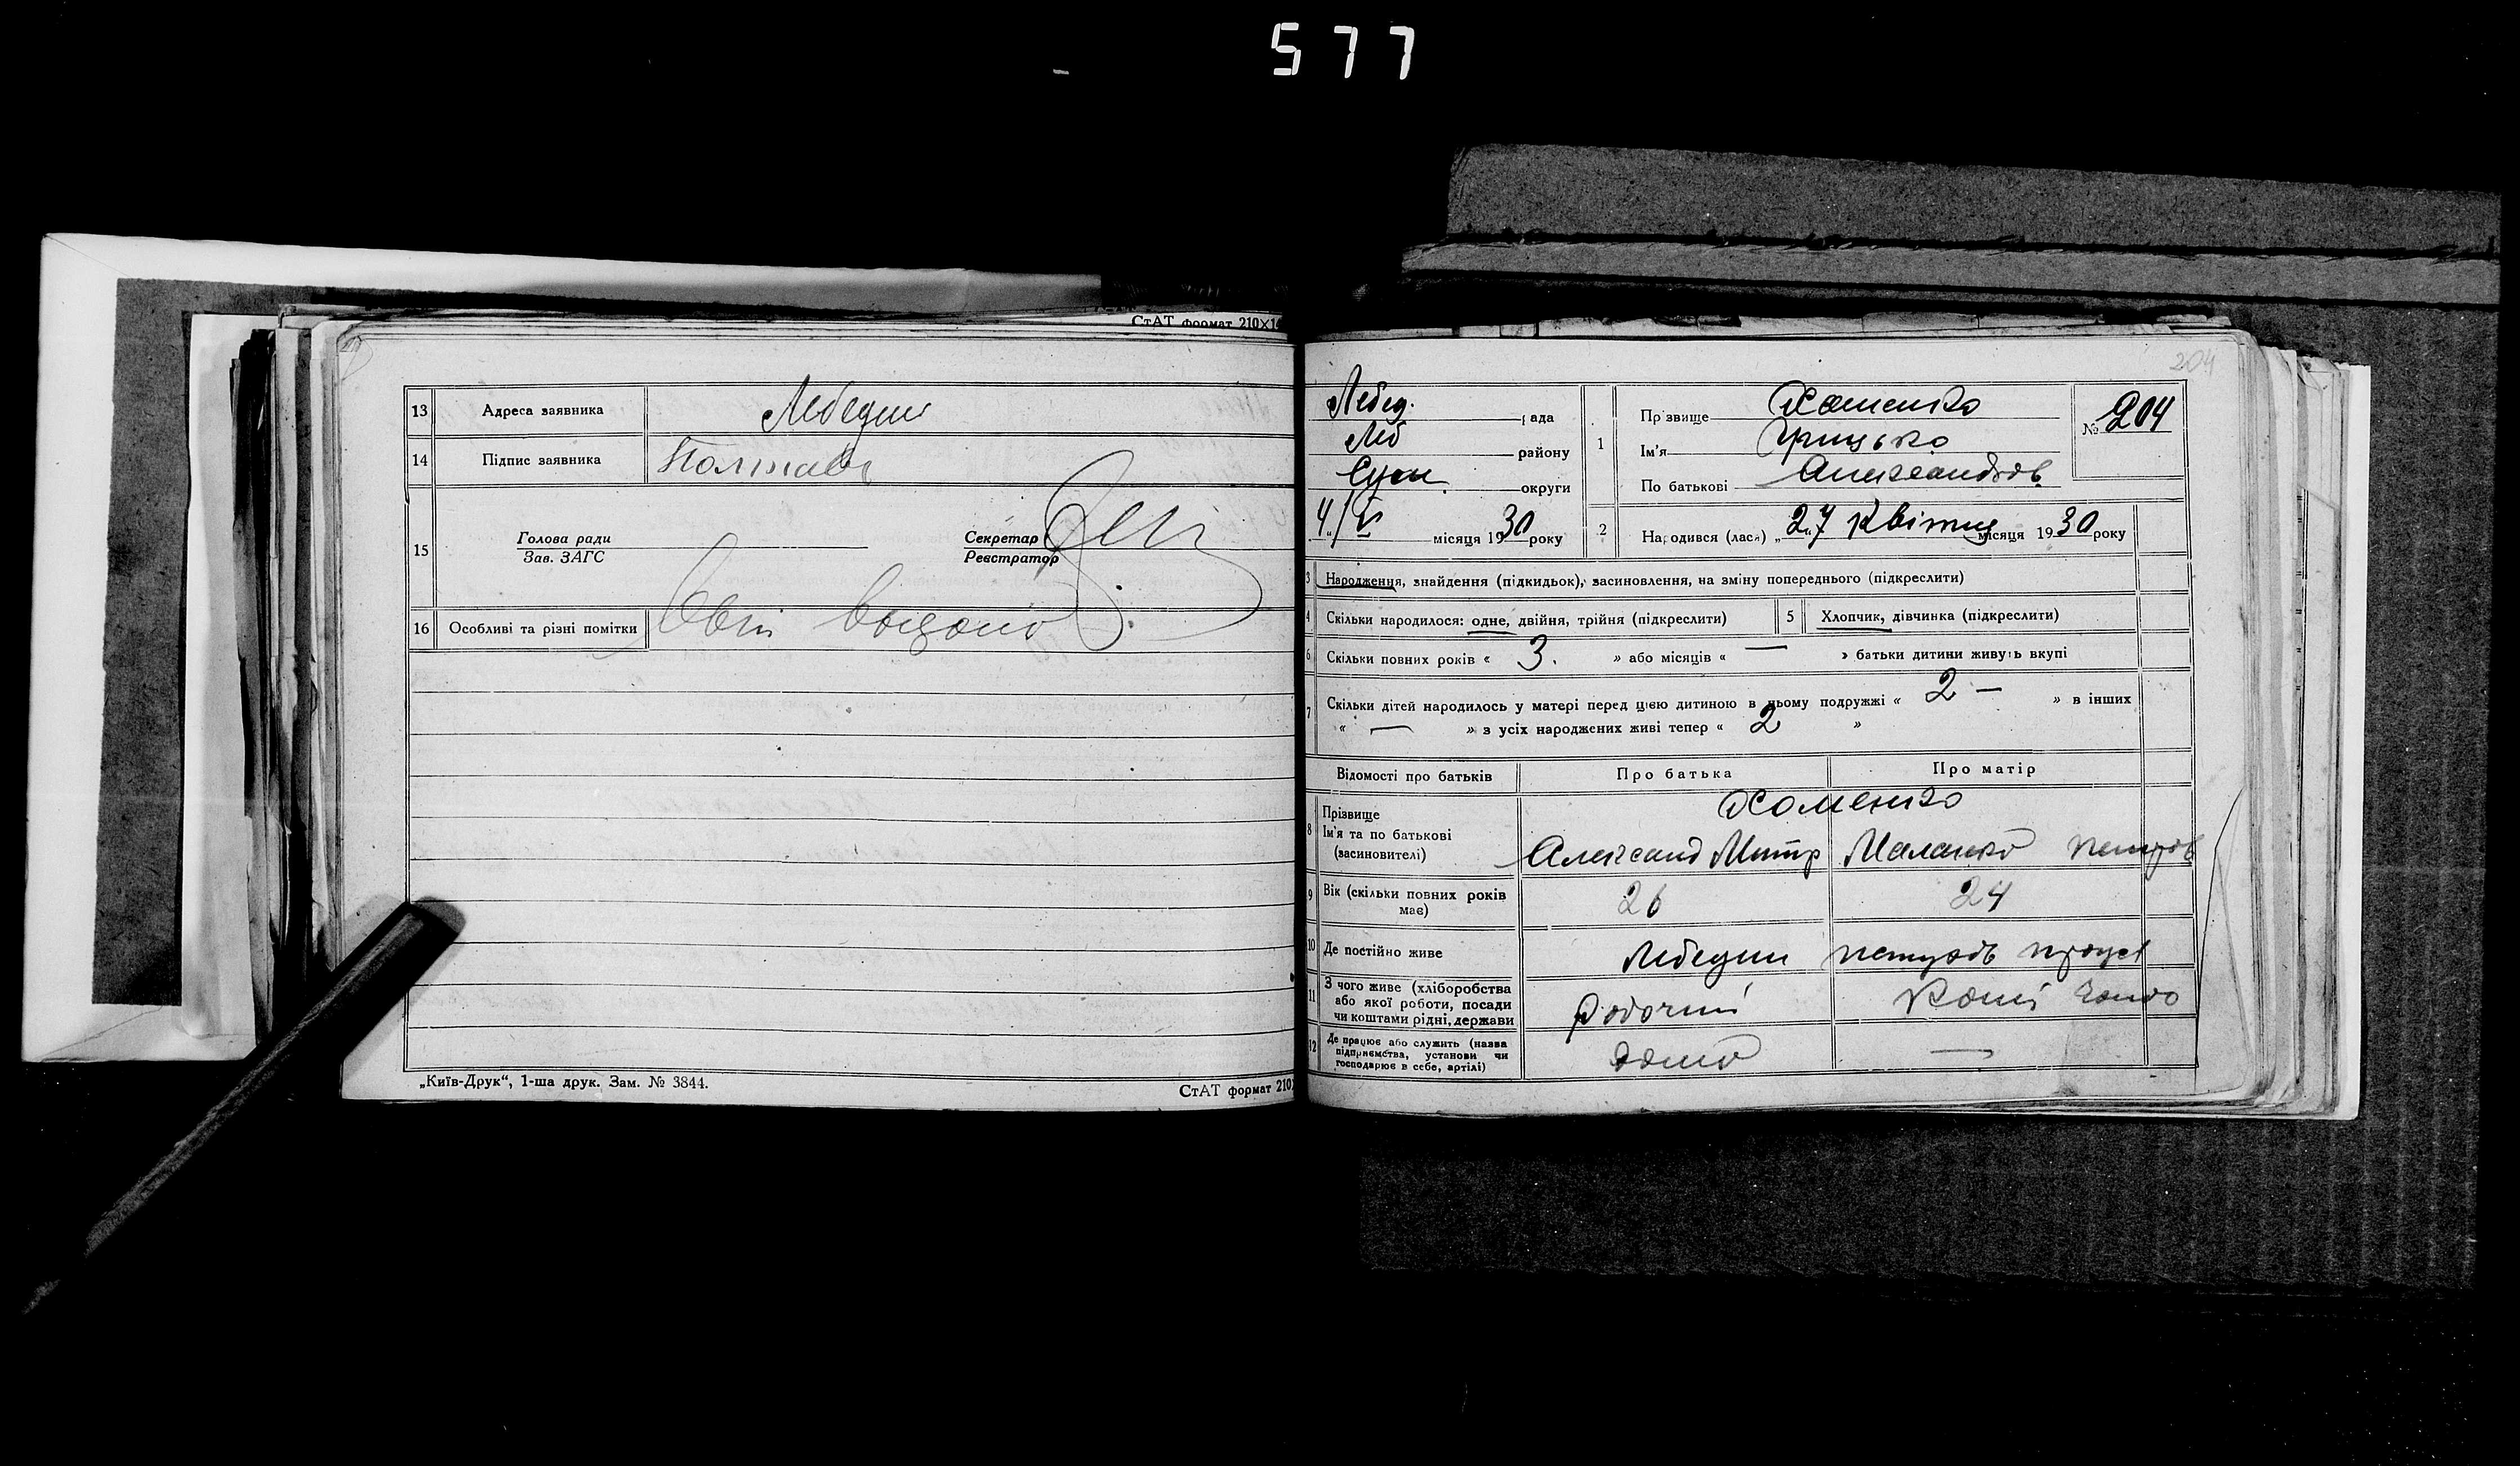 577
СтАТ формат 210×1
13 Адреса заявника Лебедин
14 Підпис заявника Полтавец
15 Голова ради
Зав. ЗАГС
Секретар
Реєстратор
16 Особливі та різні помітки
„Київ-Друк“, 1-ша друк. Зам. № 3844.
СтАТ формат 210
204
Лебед. рада
Леб району
Сум. округи
4/V місяця 1930 року
1 Прізвище Хоменко
Ім'я Грицько
По батькові Александров.
№ 204
2 Народився (лася) „27 Квітня місяця 1930 року
3 Народження, знайдення (підкидьок), засиновлення, на зміну попереднього (підкреслити)
4 Скільки народилося: одне, двійня, трійня (підкреслити)
5 Хлопчик, дівчинка (підкреслити)
6 Скільки повних років « 3. » або місяців « — » батьки дитини живуть вкупі
7 Скільки дітей народилось у матері перед цією дитиною в цьому подружжі « 2 — » в інших
« — » з усіх народжених живі тепер « 2 »
Відомості про батьків Про батька Про матір
Хоменко
8 Прізвище
Ім'я та по батькові
(засиновителі)
Александ Митр Маланка Петров
9 Вік (скільки повних років
має)
26 24
10 Де постійно живе Лебедин
11 З чого живе (хліборобства
або якої роботи, посади
чи коштами рідні, держави
Робочий
12 Де працює або служить (назва
підприємства, установи чи
господарює в себе, артілі)
—